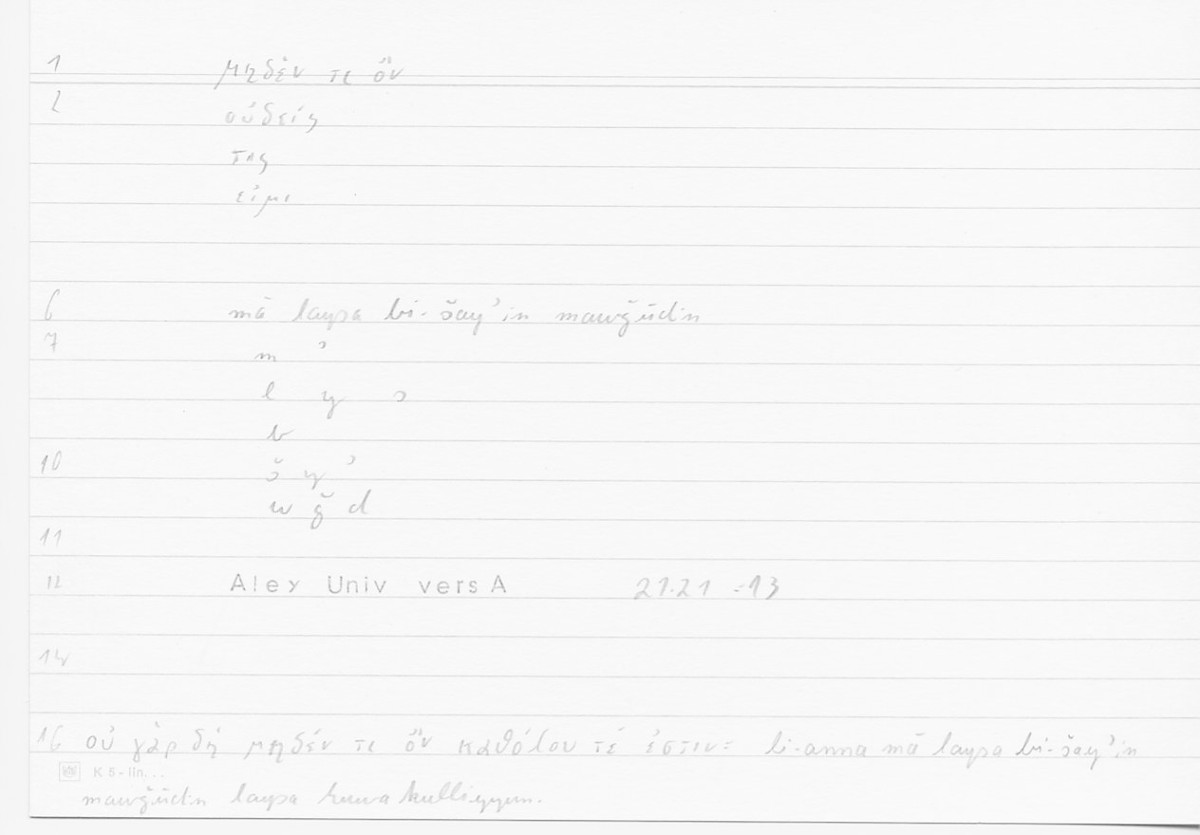 1 μηδέν τι ὄν
2 οὐδείς
τις
εἰμι
6 mā laysa bi-šayʾin mawǧūdin
7 m ʾ
l y s
b
10 š y ʾ
w ǧ d
11
12 Alex Univ vers A 21.21 = 13
14
16 οὐ γὰρ δὴ μηδέν τι ὄν καθόλου τέ ἐστιν = li-anna mā laysa bi-šayʾin
K 5-lin...
mawǧūdin laysa huwa kulliyyun.